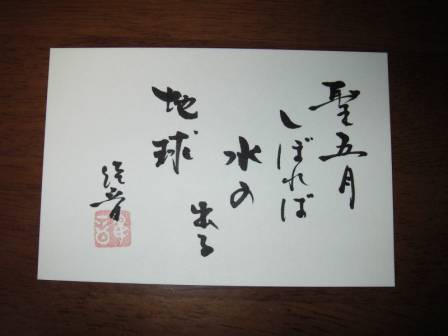 聖五月
しぼれば
水の
出る
地球